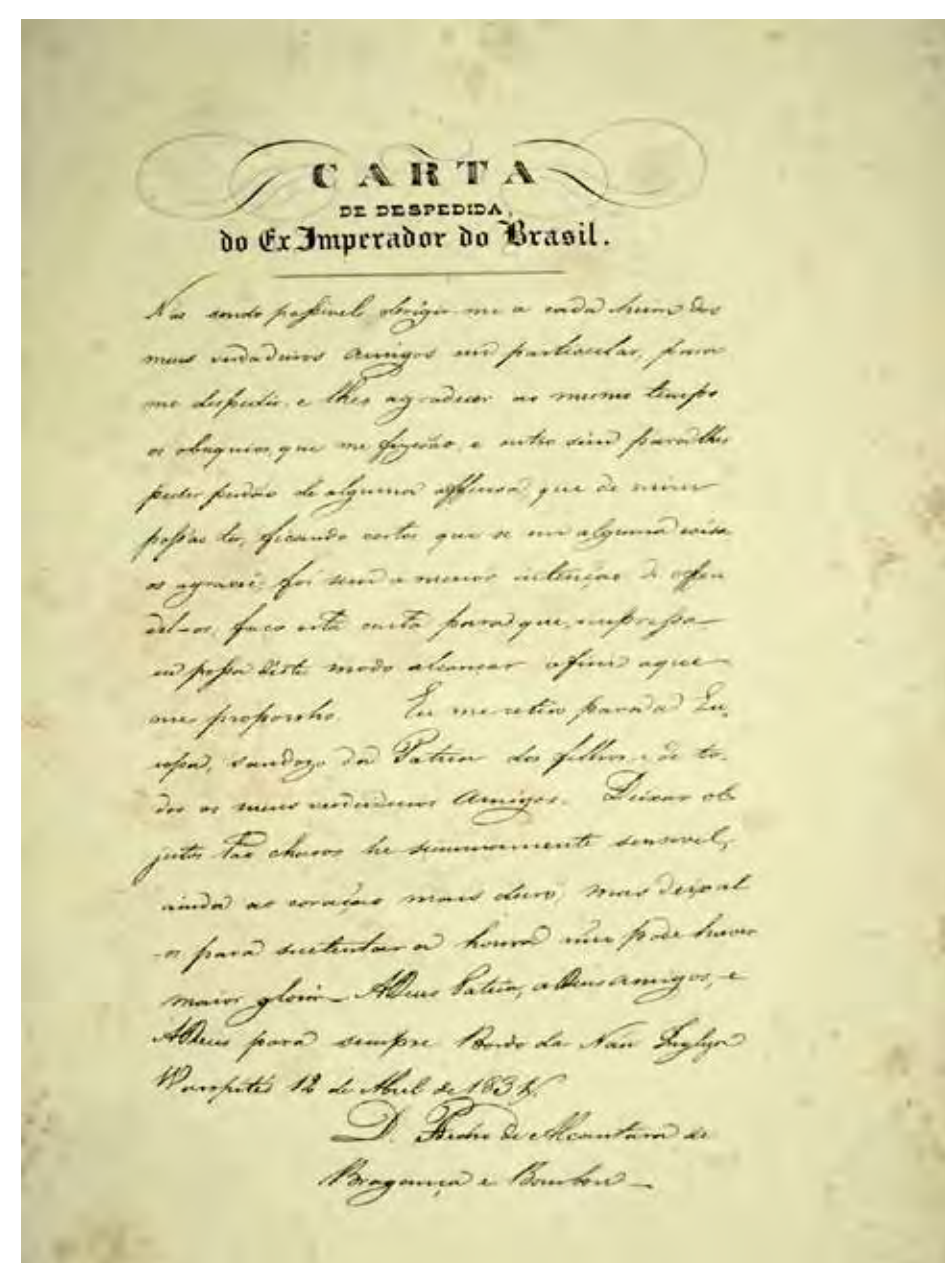 CARTA
DE DESPEDIDA,
do Ex Imperador do Brasil.
Não sendo possivel dirigir-me a cada hum dos
meus verdadeiros amigos em particular, para
me despedir, e lhes agradecer ao mesmo tempo
os obsequios, que me fizerão, e outro sim para lhes
pedir perdão de alguma offensa, que de mim
possão ter, ficando certos que se em alguma coisa
os agravei, foi sem a menor intenção de offen
del-os, faco esta carta para que, impressa
eu possa deste modo alcançar o fim a que
me proponho. Eu me retiro para a Eu,
ropa, saudozo da Patria dos filhos, e de to-
dos os meus verdadeiros Amigos. Deixar ob-
jectos tão charos he summamente sensivel,
ainda ao coração mais duro, mas deixal
-os para sustentar a honra não pode haver
maior gloria_ Adeus Patria, adeus amigos, e
Adeus para sempre Bordo da Nau Ingleza
Warspite 12 de Abril de 1831.
D. Pedro de Alcantara de
Bragança e Bourbon _